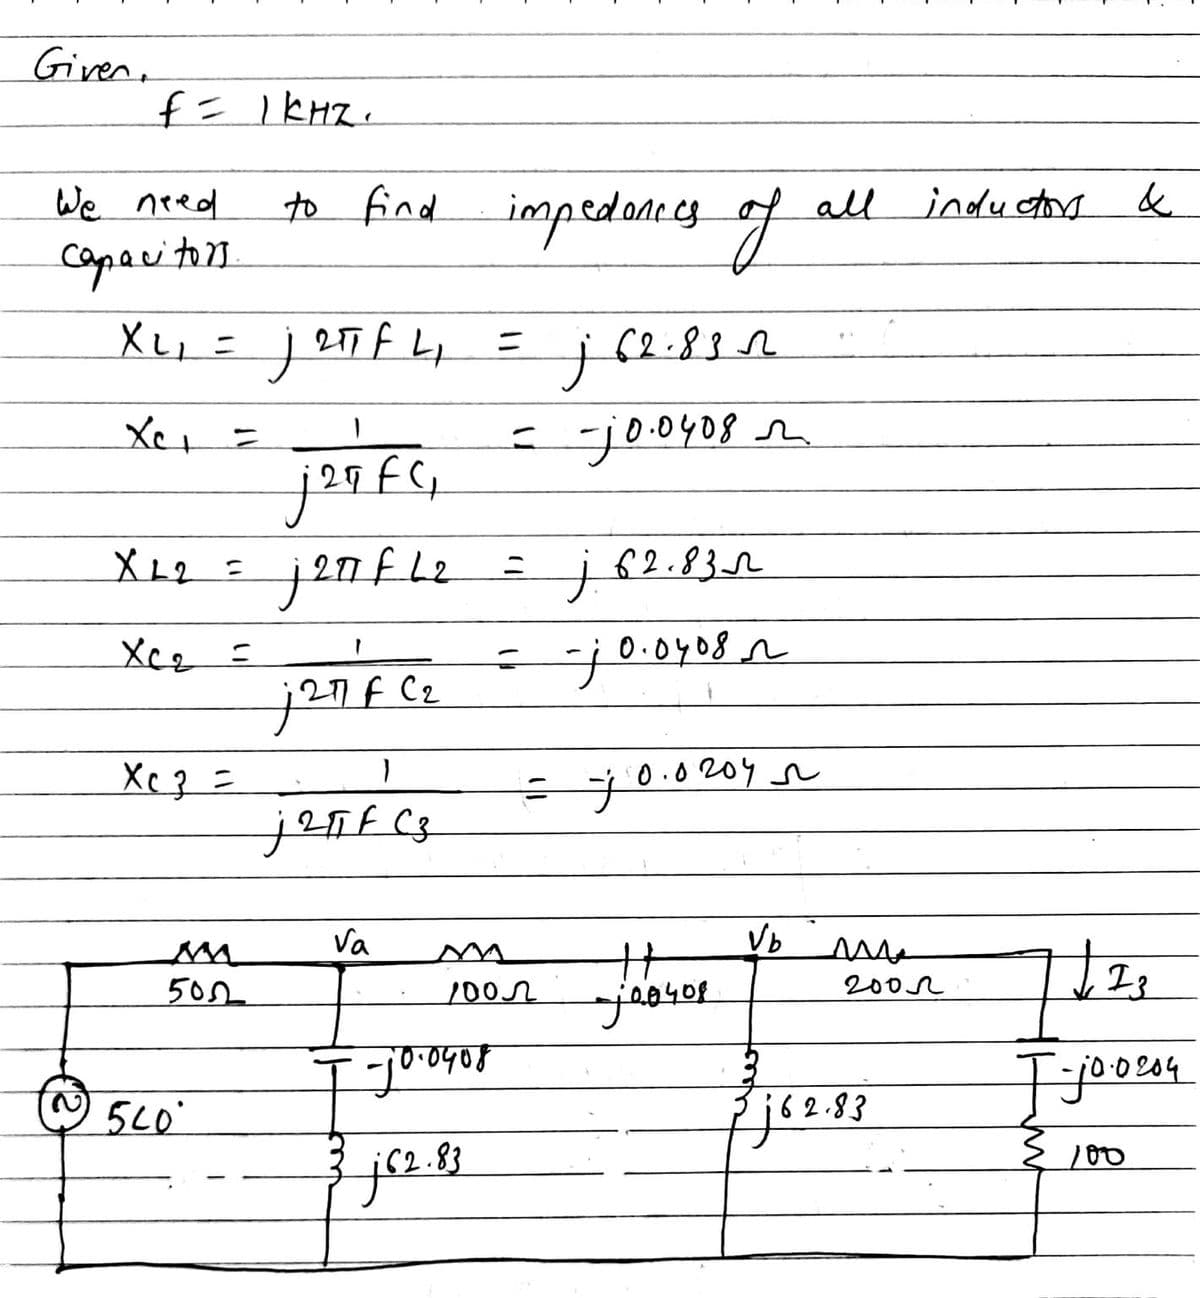 Given,
f = 1 kHz.
We need to find impedances of all inductors &
capacitors.
XL1 = j 2π f L1 = j 62.83 Ω
Xc1 = 1 / j2π f C1 = -j0.0408 Ω
XL2 = j2π f L2 = j 62.83 Ω
Xc2 = 1 / j2π f C2 = -j 0.0408 Ω
Xc3 = 1 / j2π f C3 = -j 0.0204 Ω
Va Vb
50Ω 100Ω -j0.0408 200Ω ↓ I3
-j0.0408 -j0.0204
5∠0° j62.83
j62.83 100